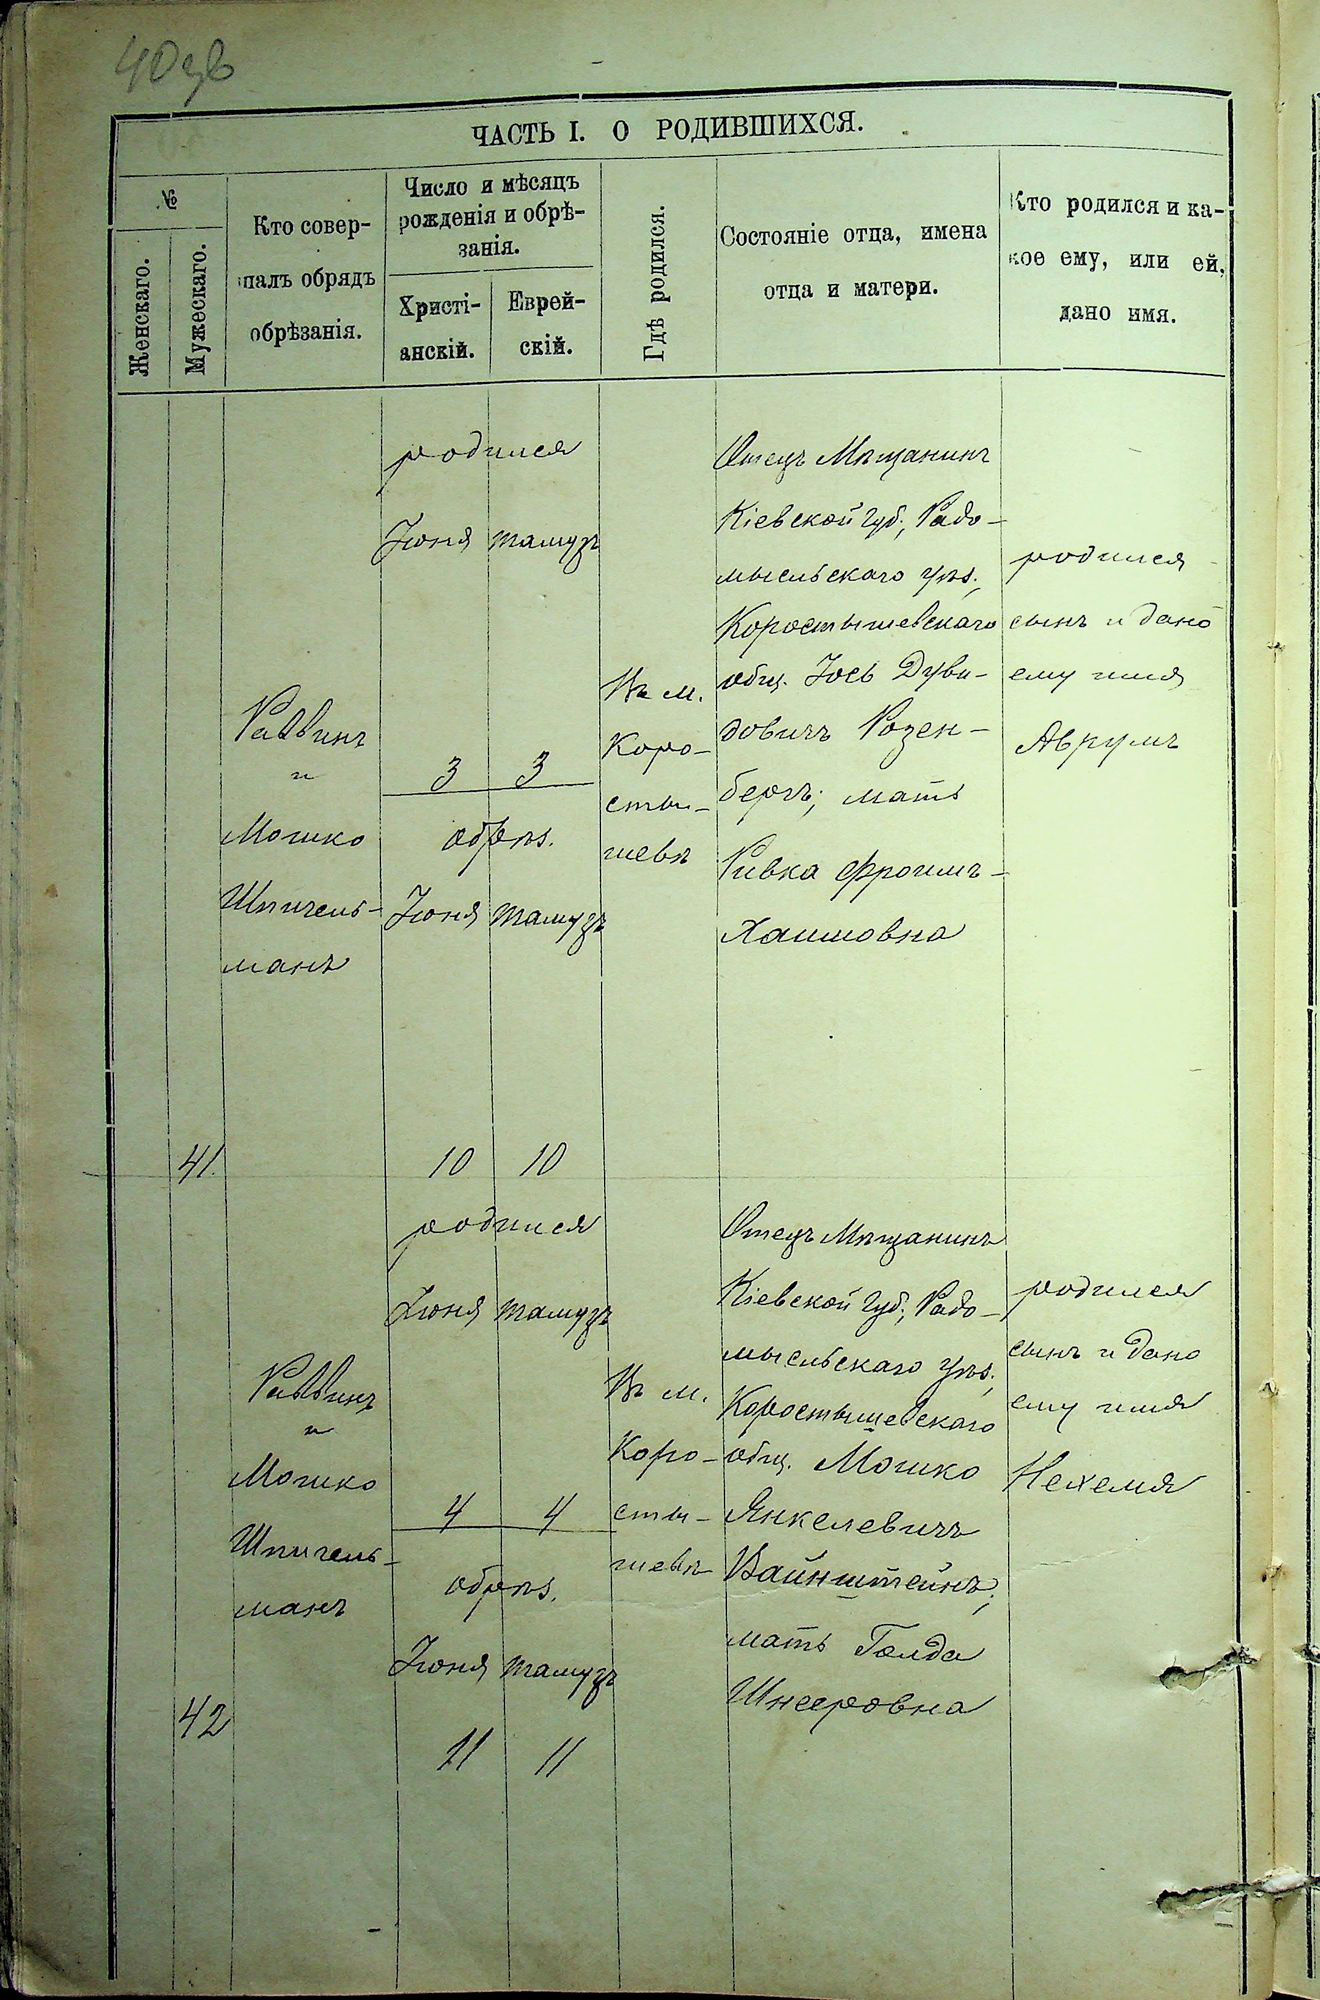 40зв
ЧАСТЬ I. О РОДИВШИХСЯ.
№
Женскаго.
Мужескаго.
Кто совер-
шалъ обрядъ
обрѣзанія.
Число и мѣсяцъ
рожденія и обрѣ-
занія.
Христі-
анскій.
Еврей-
скій.
Гдѣ родился.
Состояніе отца, имена
отца и матери.
Кто родился и ка-
кое ему, или ей,
дано имя.
41.
Раввинъ
и
Мошко
Шпигель-
манъ
родился
Іюня Тамузъ
3 3
обрѣз.
Іюня Тамузъ
10 10
Въ м.
Коро-
сты-
шевѣ
Отецъ Мѣщанинъ
Кіевской губ., Радо-
мысльскаго уѣз.,
Коростышевскаго
общ. Іось Дуви-
довичъ Розен-
бергъ; мать
Ривка Фроимъ-
Хаимовна
родился
сынъ и дано
ему имя
Аврумъ
42
Раввинъ
и
Мошко
Шпигель-
манъ
родился
Іюня Тамузъ
4 4
обрѣз.
Іюня Тамузъ
11 11
Въ м.
Коро-
сты-
шевѣ
Отецъ Мѣщанинъ
Кіевской губ., Радо-
мысльскаго уѣз.,
Коростышевскаго
общ. Мошко
Янкелевичъ
Вайнштейнъ;
мать Голда
Шнееровна
родился
сынъ и дано
ему имя
Нехемя